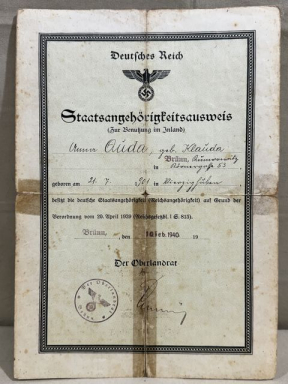 Deutsches Reich
Staatsangehörigkeitsausweis
(Zur Benutzung im Inland)
Anna Auda, geb. Klauda
in Brünn,
geboren am 21. 7. 901 in
besitzt die deutsche Staatsangehörigkeit (Reichsangehörigkeit) auf Grund der
Verordnung vom 20. April 1939 (Reichsgesetzbl. I S. 815).
Brünn, den 10. Feb. 1940. 19
Der Oberlandrat
Der Oberlandrat